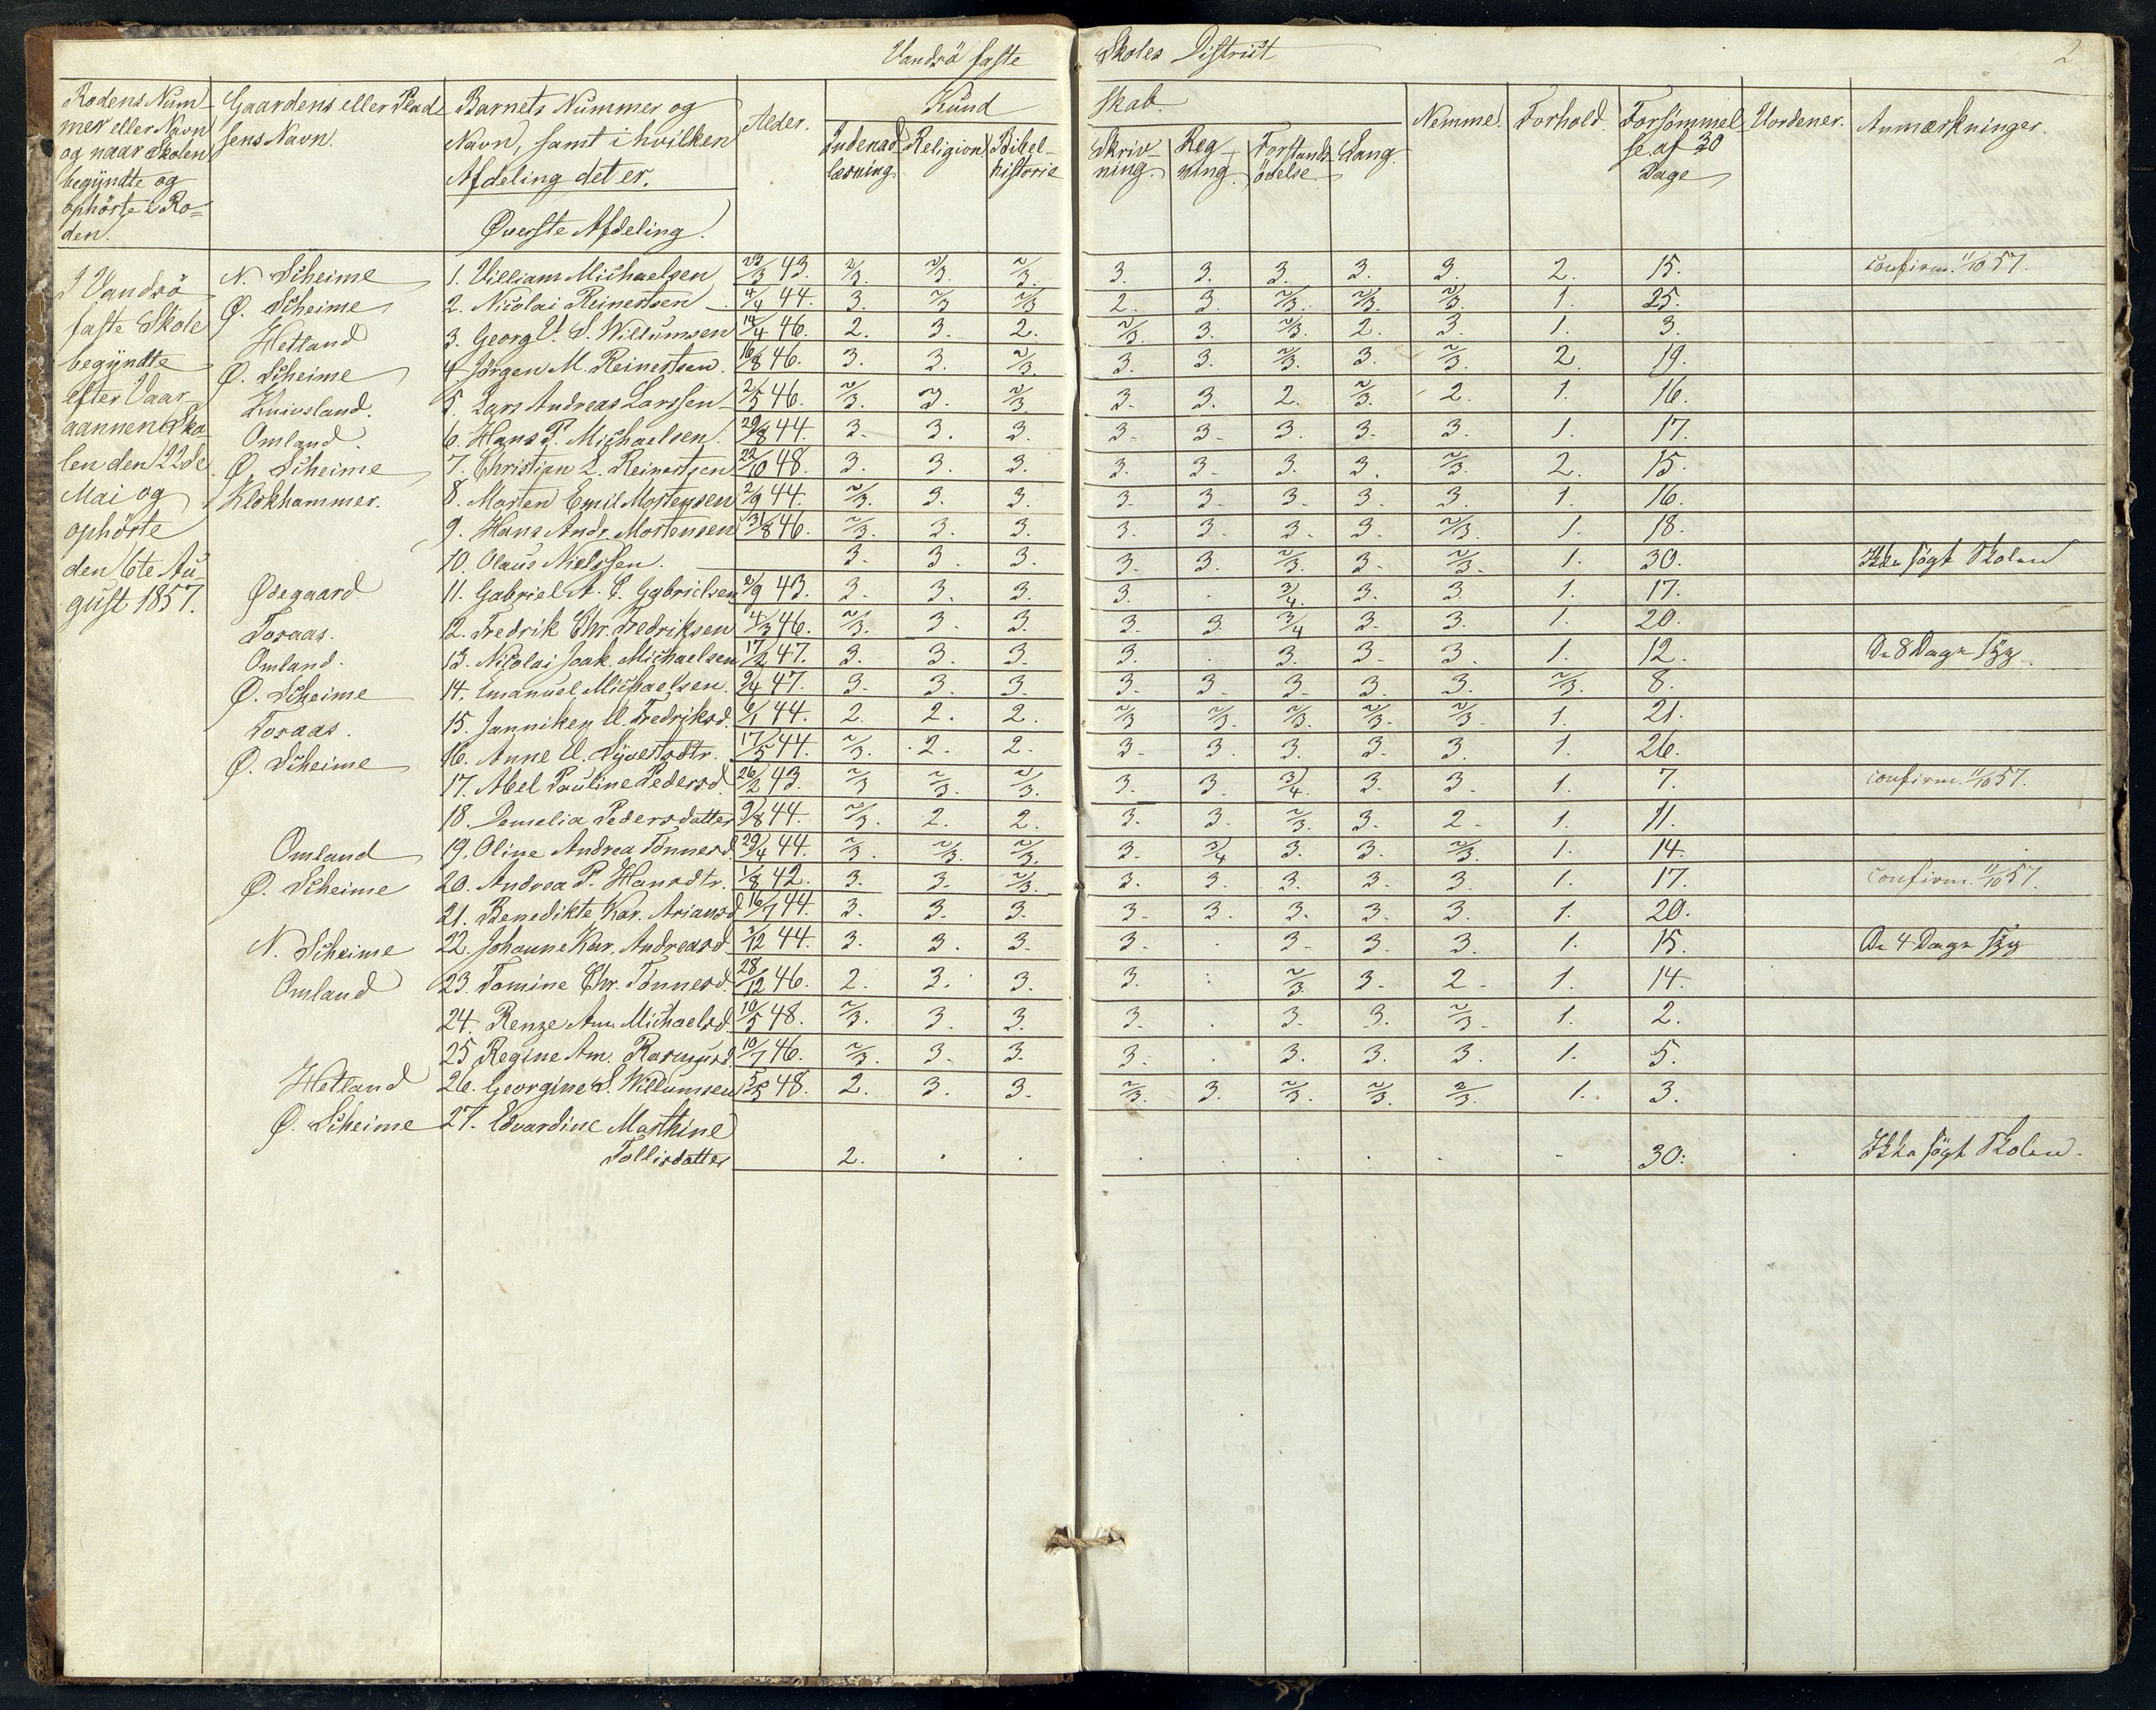 Vandsö faste Skoles District
2
Rodens Nummer eller Navn og naar Skolen begyndte og ophörte i Roden. | Gaardens eller Pladsens Navn. | Barnets Nummer og Navn, samt i hvilken Afdeling det er. | Alder. | Kundskab. | Nemme. | Forhold. | Forsömmelse af 30 Dage | Uordener. | Anmærkninger.
Indenadlæsning. | Religion | Bibelhistorie | Skrivning. | Regning. | Forstands ödelse. | Sang.
Øverste Afdeling.
I Vandsö
faste Skole
begyndte
efter Vaar-
aannen Sko-
len den 22de
Mai og
ophörte
den 6te Au-
gust 1857.
N. Scheime 1. Villiam Michaelsen 23/3 43. 2/3. 2/3. 2/3. 3. 3. 3. 3. 3. 2. 15. confirm. 11/10 57.
Ø. Scheime 2. Nicolai Reinertsen 4/4 44. 3. 2/3 2/3 2. 3. 2/3. 2/3. 2/3. 1. 25.
Hetland 3. Georg V. S. Willumsen 14/4 46. 2. 3. 2. 2/3. 3. 2/3. 2. 3. 1. 3.
Ø. Scheime 4 Jörgen M. Reinertsen. 16/8 46. 3. 3. 2/3. 3. 3. 2/3. 3. 2/3. 2. 19.
Knivsland. 5. Lars Andreas Larssen 2/5 46. 2/3. 3. 2/3. 3. 3. 2. 2/3. 2. 1. 16.
Omland. 6. Hans P. Michaelsen. 29/8 44. 3. 3. 3. 3. 3. 3. 3. 3. 1. 17.
Ø. Scheime 7. Christian L. Reinertsen 22/10 48. 3. 3. 3. 3. 3. 3. 3. 2/3. 2. 15.
Klokhammer. 8. Morten Emil Mortensen 2/9 44. 2/3. 3. 3. 3. 3. 3. 3. 3. 1. 16.
9. Hans Andr. Mortensen 31/8 46. 2/3. 3. 3. 3. 3. 3. 3. 2/3. 1. 18.
10. Olaus Nielssen. 3. 3. 3. 3. 3. 2/3. 3. 2/3. 1. 30. Ikke sögt Skolen
Ødegaard 11. Gabriel A. C. Gabrielsen 2/9 43. 2. 3. 3. 3. . 3/4. 3. 3. 1. 17.
Toraas. 12. Fredrik Chr. Fredriksen 4/3 46. 2/3. 3. 3. 3. 3. 3/4 3. 3. 1. 20.
Omland. 13. Nicolai Joak. Michaelsen 17/2 47. 3. 3. 3. 3. . 3. 3. 3. 1. 12. De 8 Dage syg
Ø. Scheime 14. Emanuel Michaelsen. 9/4 47. 3. 3. 3. 3. 3. 3. 3. 3. 2/3. 8.
Toraas. 15. Janniken U. Fredriksd. 6/1 44. 2. 2. 2. 2/3 2/3. 2/3. 2/3. 2/3. 1. 21.
Ø. Scheime 16. Anne E. Syvertsdtr. 17/5 44. 2/3. 2. 2. 3. 3. 3. 3. 3. 1. 26.
17. Abel Pauline Pedersd. 26/2 43. 2/3 2/3. 2/3. 3. 3. 3/4. 3. 3. 1. 7. confirm. 11/10 57.
18. Pedersdatter 9/8 44. 2/3. 2. 2. 3. 3. 2/3. 3. 2. 1. 11.
Omland 19. Oline Andrea Tönnesd. 29/4 44. 2/3. 2/3. 2/3. 3. 3/4 3. 3. 2/3. 1. 14.
Ø. Scheime 20. Andrea P. Hansdtr. 1/8 42. 3. 3. 2/3. 3. 3. 3. 3. 3. 1. 17. confirm. 11/10 57.
21. Benedikte Kar. Ariansd 16/7 44. 3. 3. 3. 3. 3. 3. 3. 3. 1. 20.
N. Scheime 22. Johanne Kar. Andreasd 3/12 44. 3. 3. 3. 3. . 3. 3. 3. 1. 15. De 4 Dage syg
Omland 23. Tomine Chr. Tönnesd 28/12 46. 2. 3. 3. 3. . 2/3. 3. 2. 1. 14.
24. Renze Michaelsd. 10/5 48. 2/3. 3. 3. 3. . 3. 3. 2/3. 1. 2.
25 Regine Am. Rasmusd. 10/7 46. 2/3. 3. 3. 3. . 3. 3. 3. 1. 5.
Hetland 26. Georgine S. Willumsen 48. 2. 3. 3. 2/3. 3. 2/3. 2/3. 2/3. 1. 3.
Ø. Scheime 27. Edvardine Marthine
Tollisdatter 2. . . . . . . . . 30. . Ikke sögt Skolen.